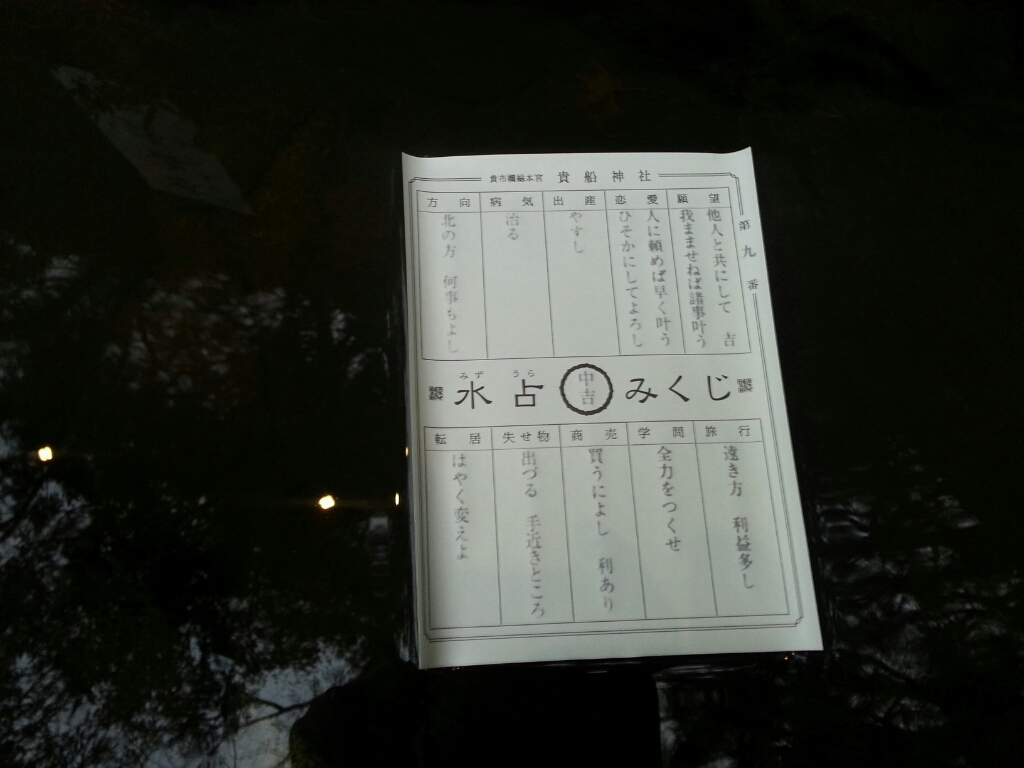 貴布禰総本宮 貴船神社
第九番
願望
他人と共にして 吉
我まませねば諸事叶う
恋愛
人に頼めば早く叶う
ひそかにしてよろし
出産
やすし
病気
治る
方向
北の方 何事もよし
みず うら
水占 中吉 みくじ
旅行
遠き方 利益多し
学問
全力をつくせ
商売
買うによし 利あり
失せ物
出づる 手近きところ
転居
はやく変えよ